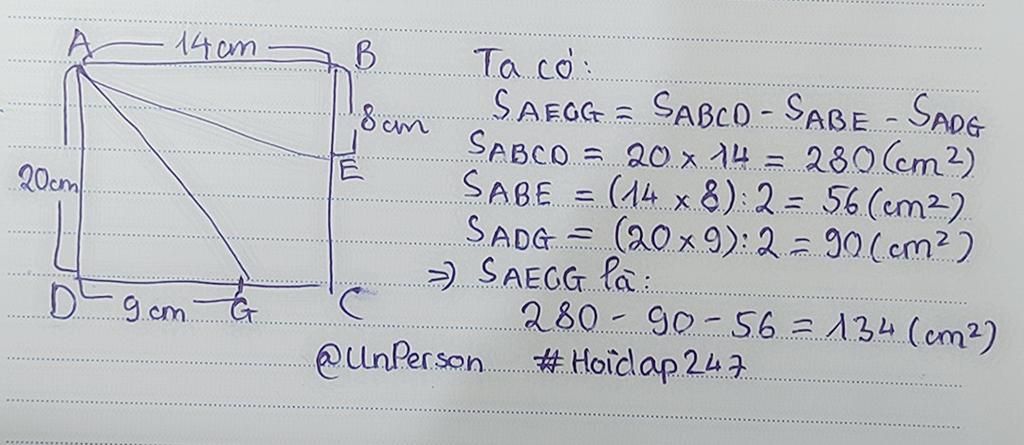 A 14cm B
8cm
E
20cm
D 9cm G C
Ta có:
SAECG = SABCD - SABE - SADG
SABCD = 20 x 14 = 280(cm²)
SABE = (14 x 8):2 = 56(cm²)
SADG = (20 x 9):2 = 90(cm²)
=> SAECG là:
280 - 90 - 56 = 134(cm²)
@UnPerson #Hoidap247